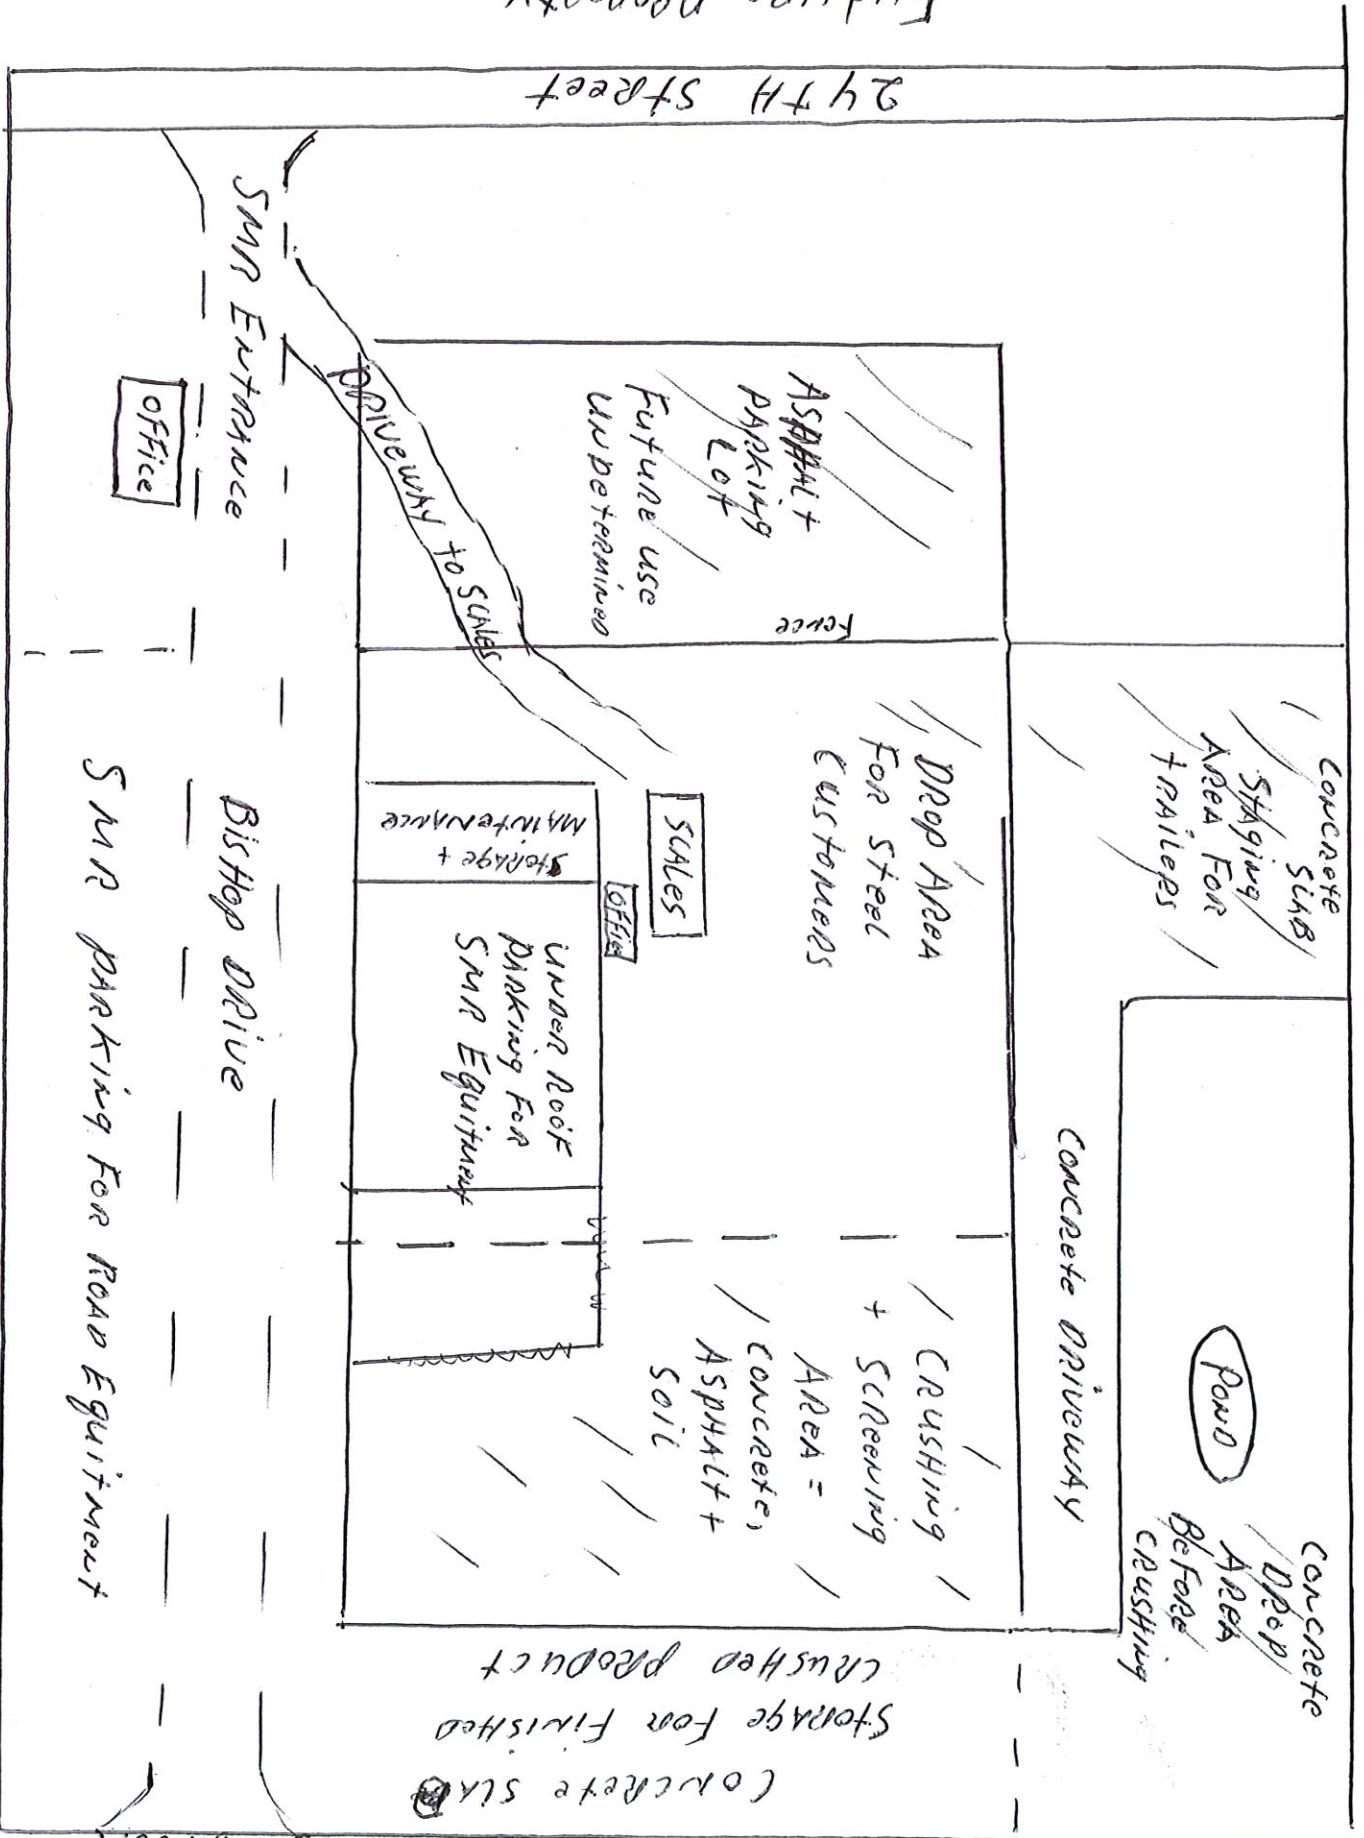 Future property
24TH Street
SMR ENtRANCE
OFFice
DRiveWAY to SCALES
ASPHALt
PARKing
Lot
Future use
UNDetermiNeD
FeNce
CONCRete
SLAB
StAgiNg
AREA FOR
tRAileRS
DROP AREA
FOR Steel
CUStOMERS
SCALES
OFFice
MAiNteNANCE
StORAge +
UNDER ROOF
PARKiNg FOR
SMR EQuitMeNt
BiSHOP DRive
SMR PARKiNg FOR ROAD EQuitMeNt
CONCRete DRiveWAY
POND
CONCRete
DROP
AREA
BeFORe
CRUSHiNg
CRUSHiNg
+ SCReeNiNg
AREA =
CONCRete,
ASPHALt +
SOiL
CONCRete SLAB
StORAge FOR FiNiSHeD
CRUSHeD PRODUCt